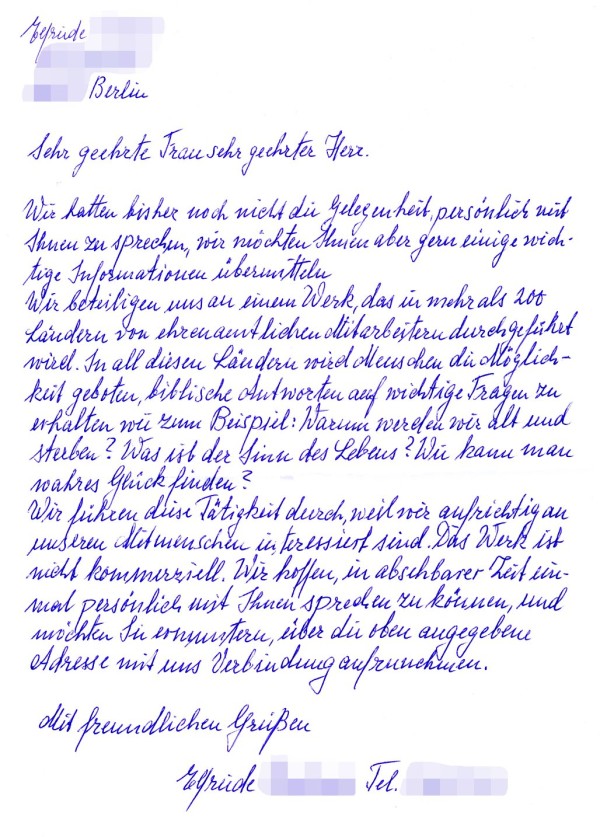 Elfriede
Berlin
Sehr geehrte Frau sehr geehrter Herr.
Wir hatten bisher noch nicht die Gelegenheit, persönlich mit
Ihnen zu sprechen, wir möchten Ihnen aber gern einige wich-
tige Informationen übermitteln
Wir beteiligen uns an einem Werk, das in mehr als 200
Ländern von ehrenamtlichen Mitarbeitern durchgeführt
wird. In all diesen Ländern wird Menschen die Möglich-
keit geboten, biblische Antworten auf wichtige Fragen zu
erhalten wie zum Beispiel: Warum werden wir alt und
sterben? Was ist der Sinn des Lebens? Wie kann man
wahres Glück finden?
Wir führen diese Tätigkeit durch, weil wir aufrichtig an
unseren Mitmenschen interessiert sind. Das Werk ist
nicht kommerziell. Wir hoffen, in absehbarer Zeit ein-
mal persönlich mit Ihnen sprechen zu können, und
möchten Sie ermuntern, über die oben angegebene
Adresse mit uns Verbindung aufzunehmen.
Mit freundlichen Grüßen
Elfriede Tel.